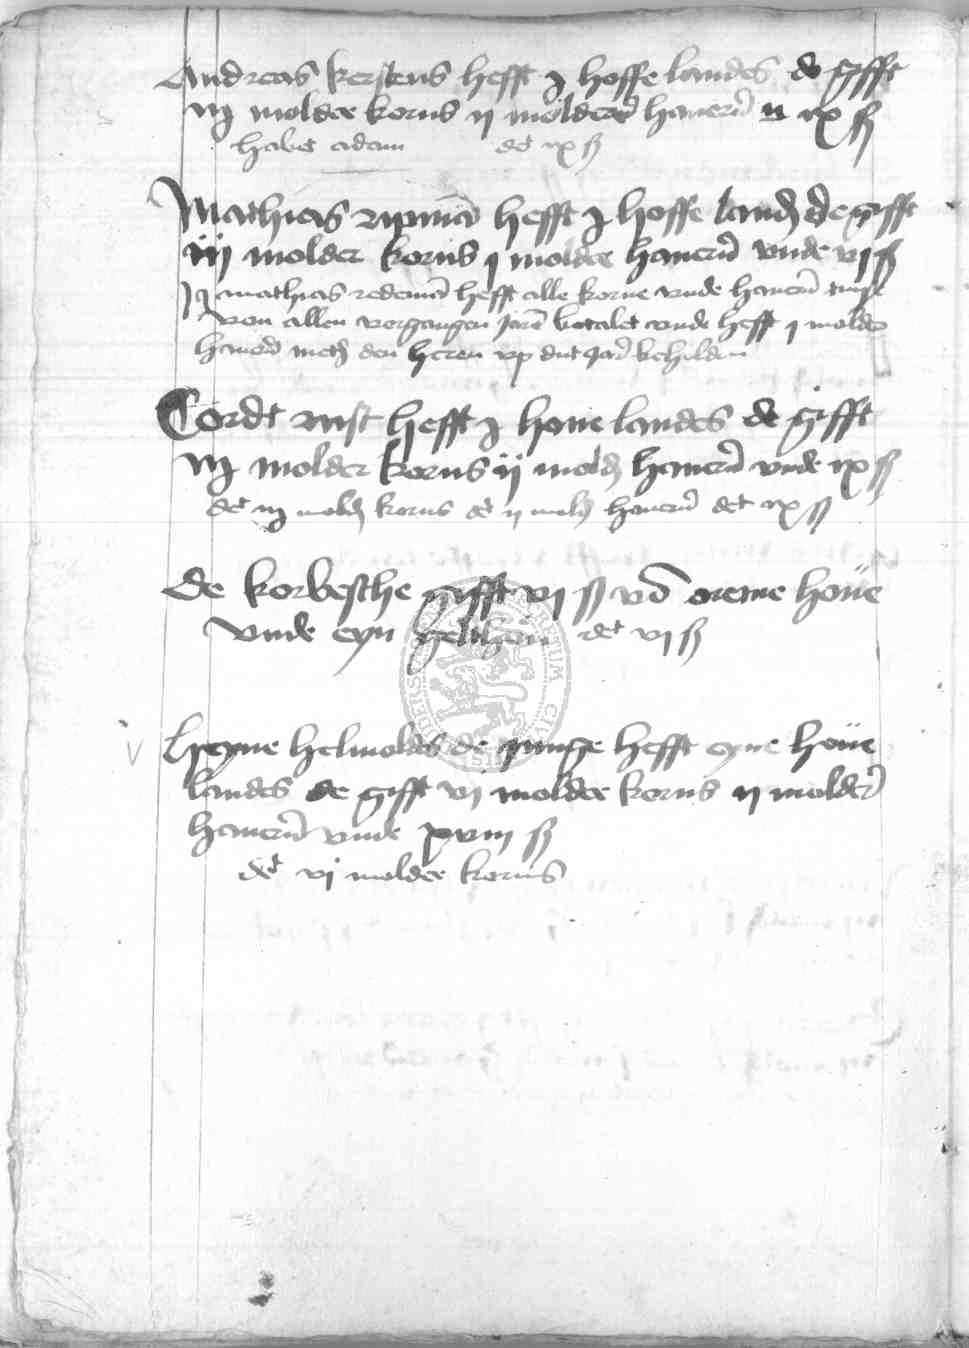 Andreas kerstens hefft j hoffe landes de gifft
iij molder korns ij molder hauern ix ß
habet adam det ix ß
Mathias hefft j hoffe landes de gifft
iij molder korns j molder hauern vnde vj ß
mathias hefft alle korne vnde hauern
von allen vergangen jaren betalet vnde hefft j molder
hauern den heren vp dut jar beholden
Cordt hefft j houe landes de gifft
iij molder korns ij mold hauern vnde ix ß
det iij mold korns det ij mold hauern det ix ß
de korbesche gifft vj ß vo oreme houe
vnde eyn det vj ß
heyne helmoldes de junge hefft eyne houe
landes de gifft vj molder korns ij molder
hauern vnde xviij ß
det vj molder korns